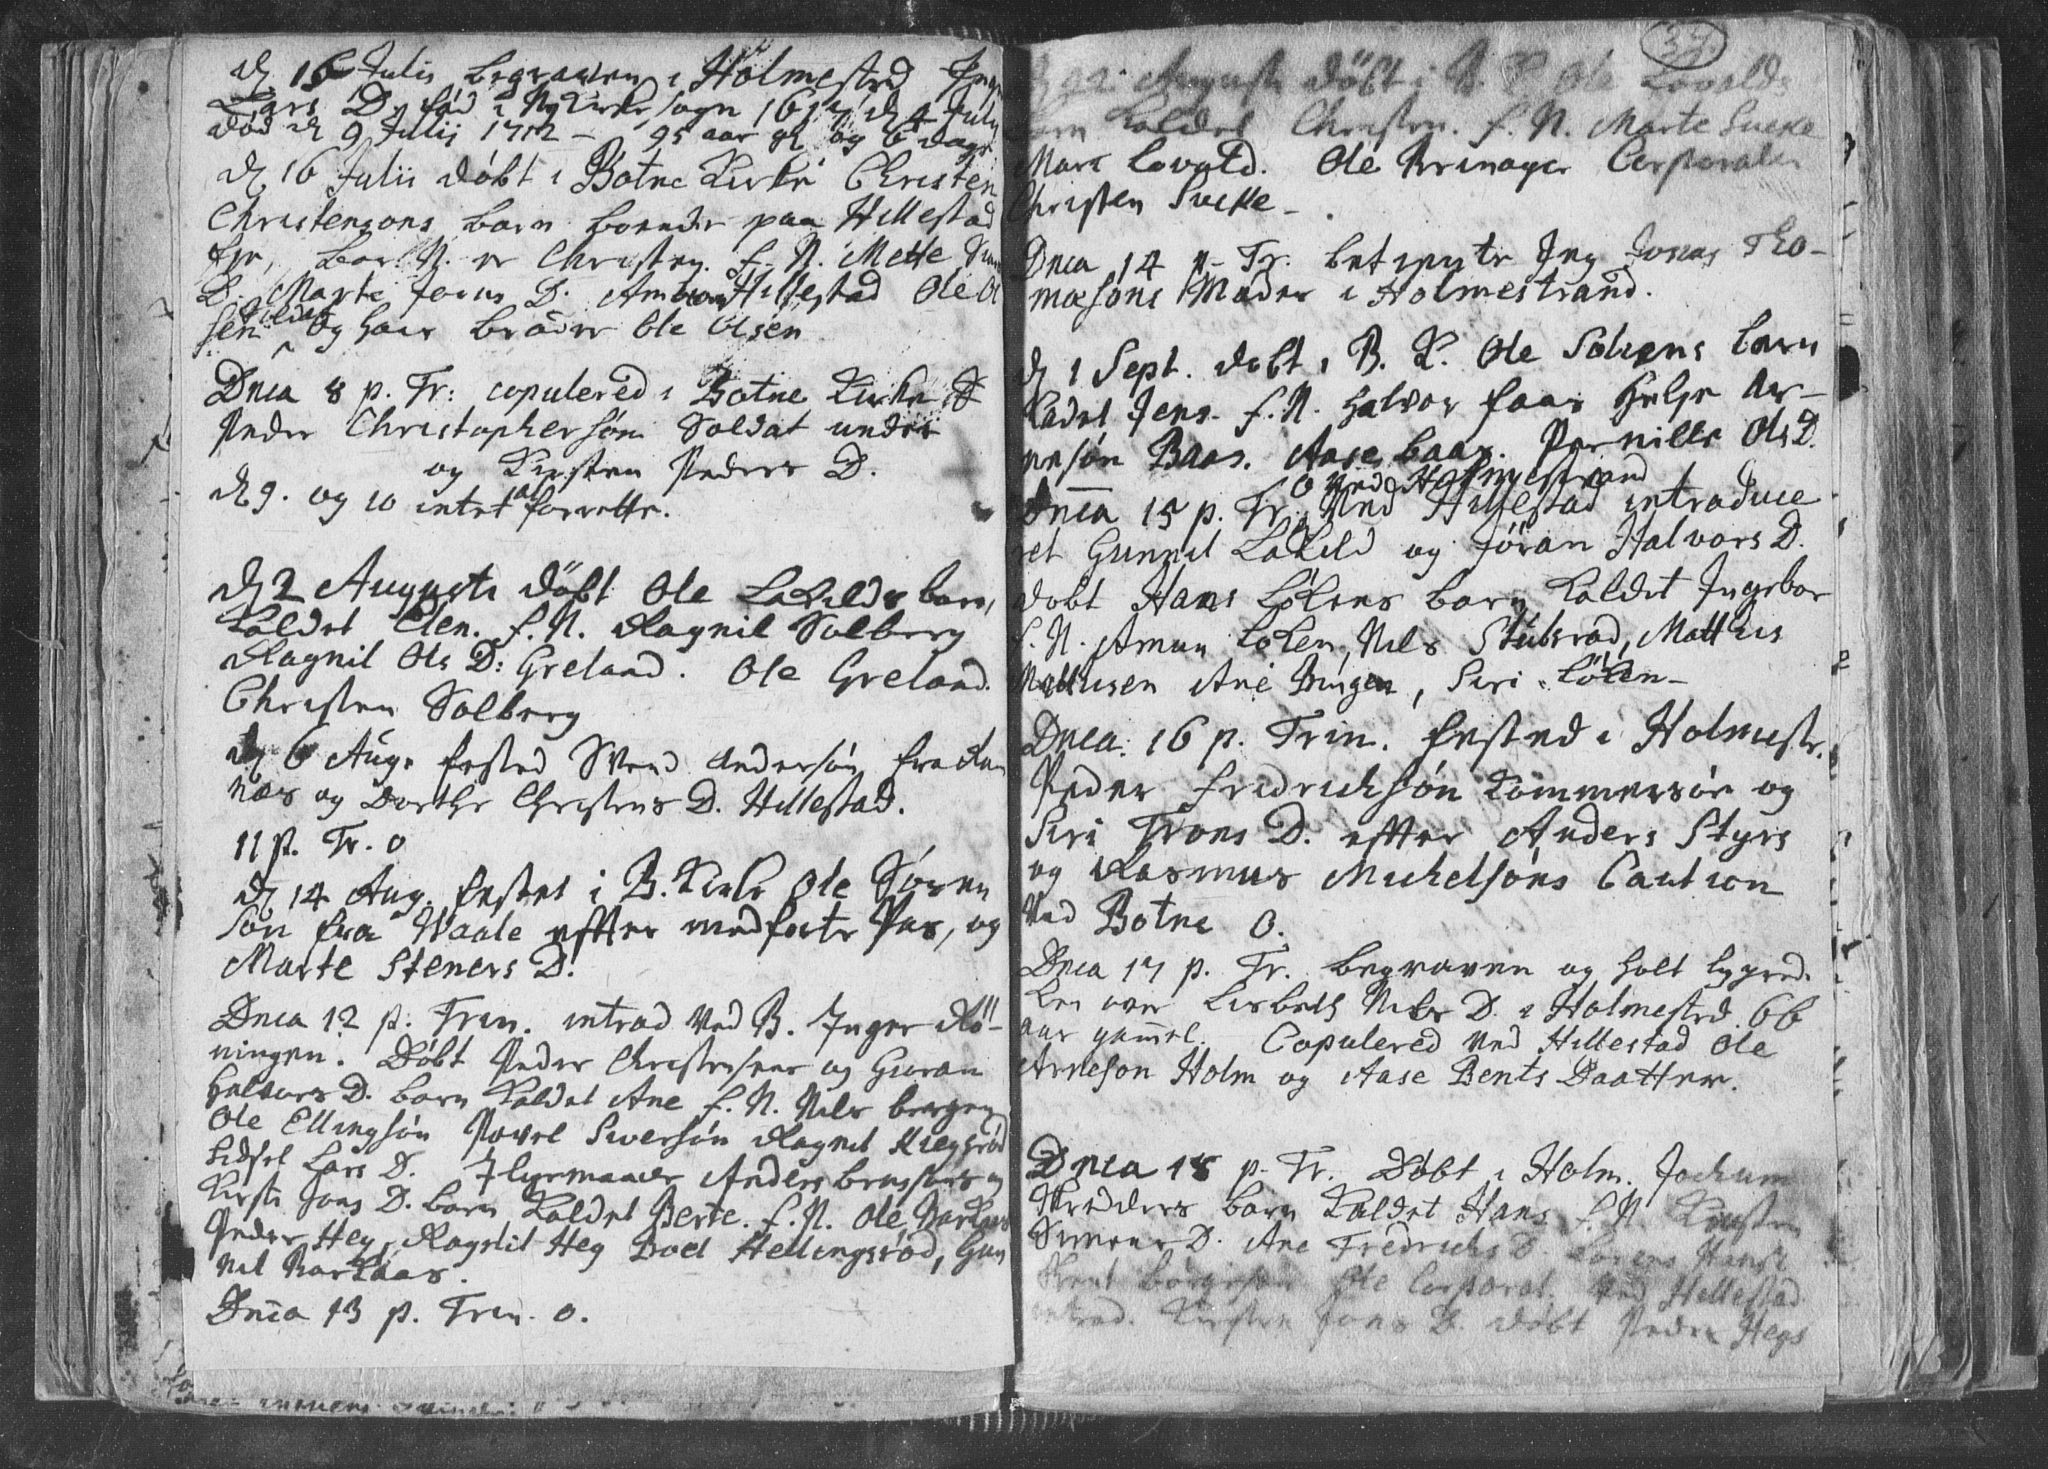 d 16 Julii begraven i Holmestrd
Lars D. fød i Kirke sogn 1617 d 4 July
død d 9 Julii 1712 – 95 aar gl og 6 dage
d 16 Julii døbt i Botne Kirke Christen
Christensøns barn boende paa Hillestad
eje, bar N. er Christen. f. N. Mette
D. Marte Joens D. Hillestad Ole
sen og hans broder Ole Olsen
Dnca 8 p. Tr: copulered i Botne Kirke
Peder Christophersøn Soldat under
og Kirsten Peders D.
d 9. og 10 intet at forrette.
d 2 Augusti døbt Ole barn,
kaldet Elen. f. N. Ragnil Solberg
Ragnil Ols D: Greland. Ole Greland.
Christen Solberg
d 6 Aug. fested Svend Andersøn fra
næs og Dorthe Christens D. Hillestad.
11 p. Tr. 0
d 14 Aug. festet i B. Kirke Ole Søren
søn fra Waale effter medførte Pas, og
Marte Steners D.
Dnca 12 p. Trin. introd ved B. Inger Rö-
ningen. Döbt Peder Christensens og Guran
Halvors D. barn kaldet Ane f. N. Nils bergen
Ole Ellingsøn Povel Siversøn Ragnil
Sidsel Lars D. Anders
Kirsti Jons D. barn kaldet Berte. f. N. Ole
Peder Heg, Ragnil Heg Boel Hellingsrød, Gun
nil
Dnca 13 p. Trin. 0.
37.
Augusti döbt i B. K. Ole Lovalds
barn kaldet Christen. f. N. Marte Sucke
Mari Lovald. Ole Corporaler
Christen Sucke –
Dnca 14 p. Tr. betiente Jeg Jonas Tho-
mæsøns Moder i Holmestrand.
d 1 Sept. døbt i B. K. Ole Solbergs barn
kaldet Jens. f. N. Halvor faar Helje Ar-
nesøn Baas. Aase baas. Pernille Ols D.
0 ved Holmestrand
Dnca 15 p. Tr. Ved Hillestad introduce
ret Gunnil og Jøran Halvors D.
døbt Hans Løkens barn kaldet Ingebor
f. N. Amun Løken, Nils Stubsrød, Matthis
Mathisen Ane Bingen, Siri Løken –
Dnca. 16 p. Trin. fested i Holmestr.
Peder Fridrichsøn Kommersøe og
Siri Trons D. effter Anders Styrs
og Rasmus Michelsøns Caution
Ved Botne 0.
Dnca 17 p. Tr. begraven og holt ligpred.
ken over Lisbeth Nils D. i Holmestrd. 66
aar gammel. Copulered ved Hillestad Ole
Arnesøn Holm og Aase Bents Daatter.
Dnca 18 p. Tr. Döbt i Holm. Jochum
Skredders barn kaldet Hans f. N. Kirsten
Simens D. Ane Fredrichs D.
Ole Corporal. Ved Hillestad
introd. Kirsten Jons D. døbt Peder Hegs